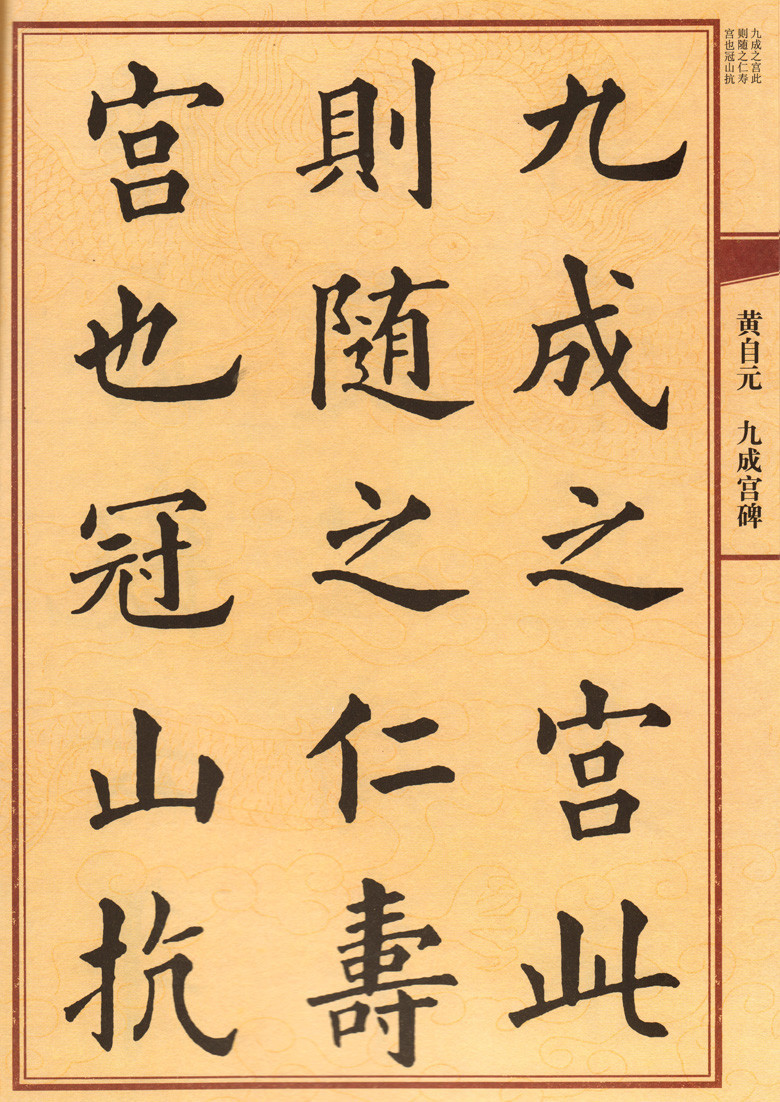 九成之宫此
則隨之仁壽
宫也冠山抗
九成之宫此
则随之仁寿
宫也冠山抗
黄自元 九成宫碑